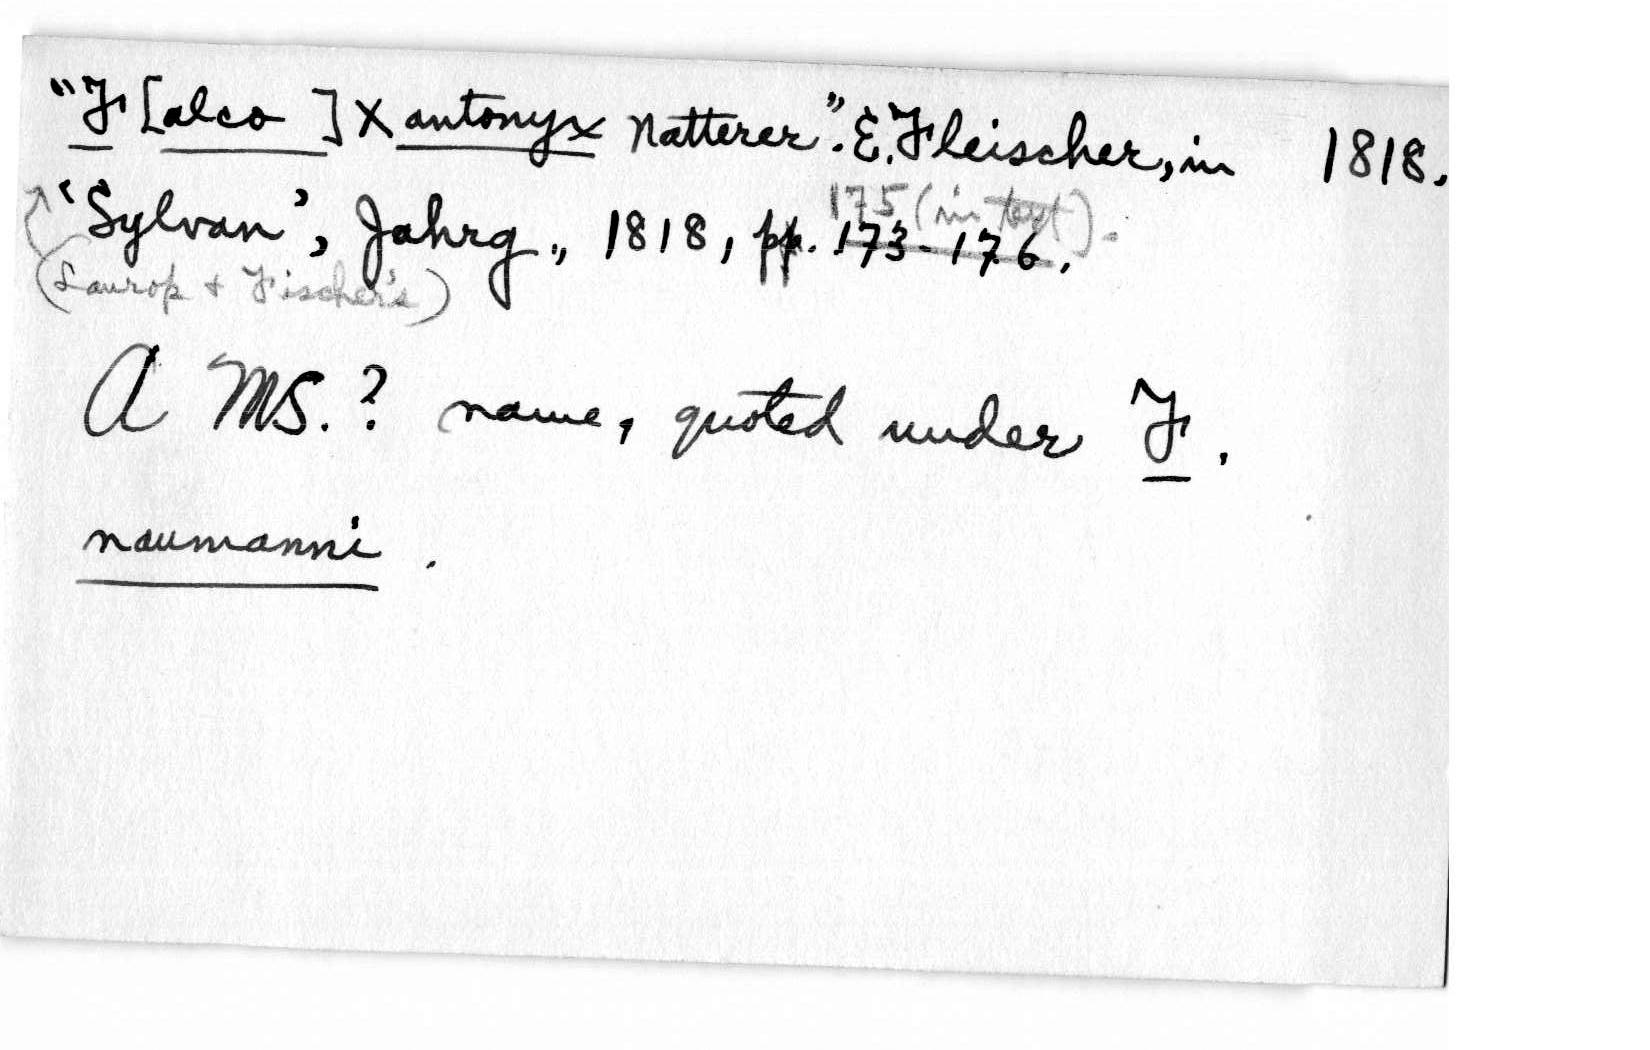 "F[alco ] Xantonyx Natterer". E. Fleischer, in 1818.
175 (in text).
'Sylvan', Jahrg., 1818, pp. 173-176.
(Laurop + Fischer's)
A MS.? name, quoted under F.
naumanni.